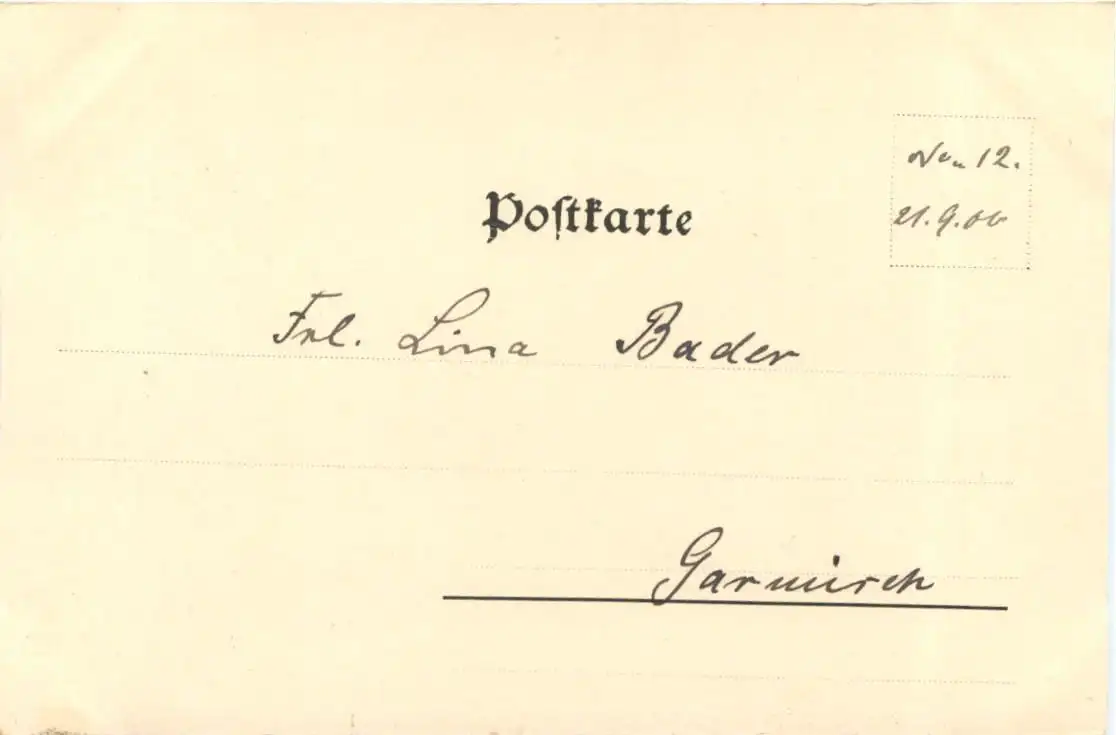 Non 12.
21.9.00
Postkarte
Frl. Lina Bader
Garmisch